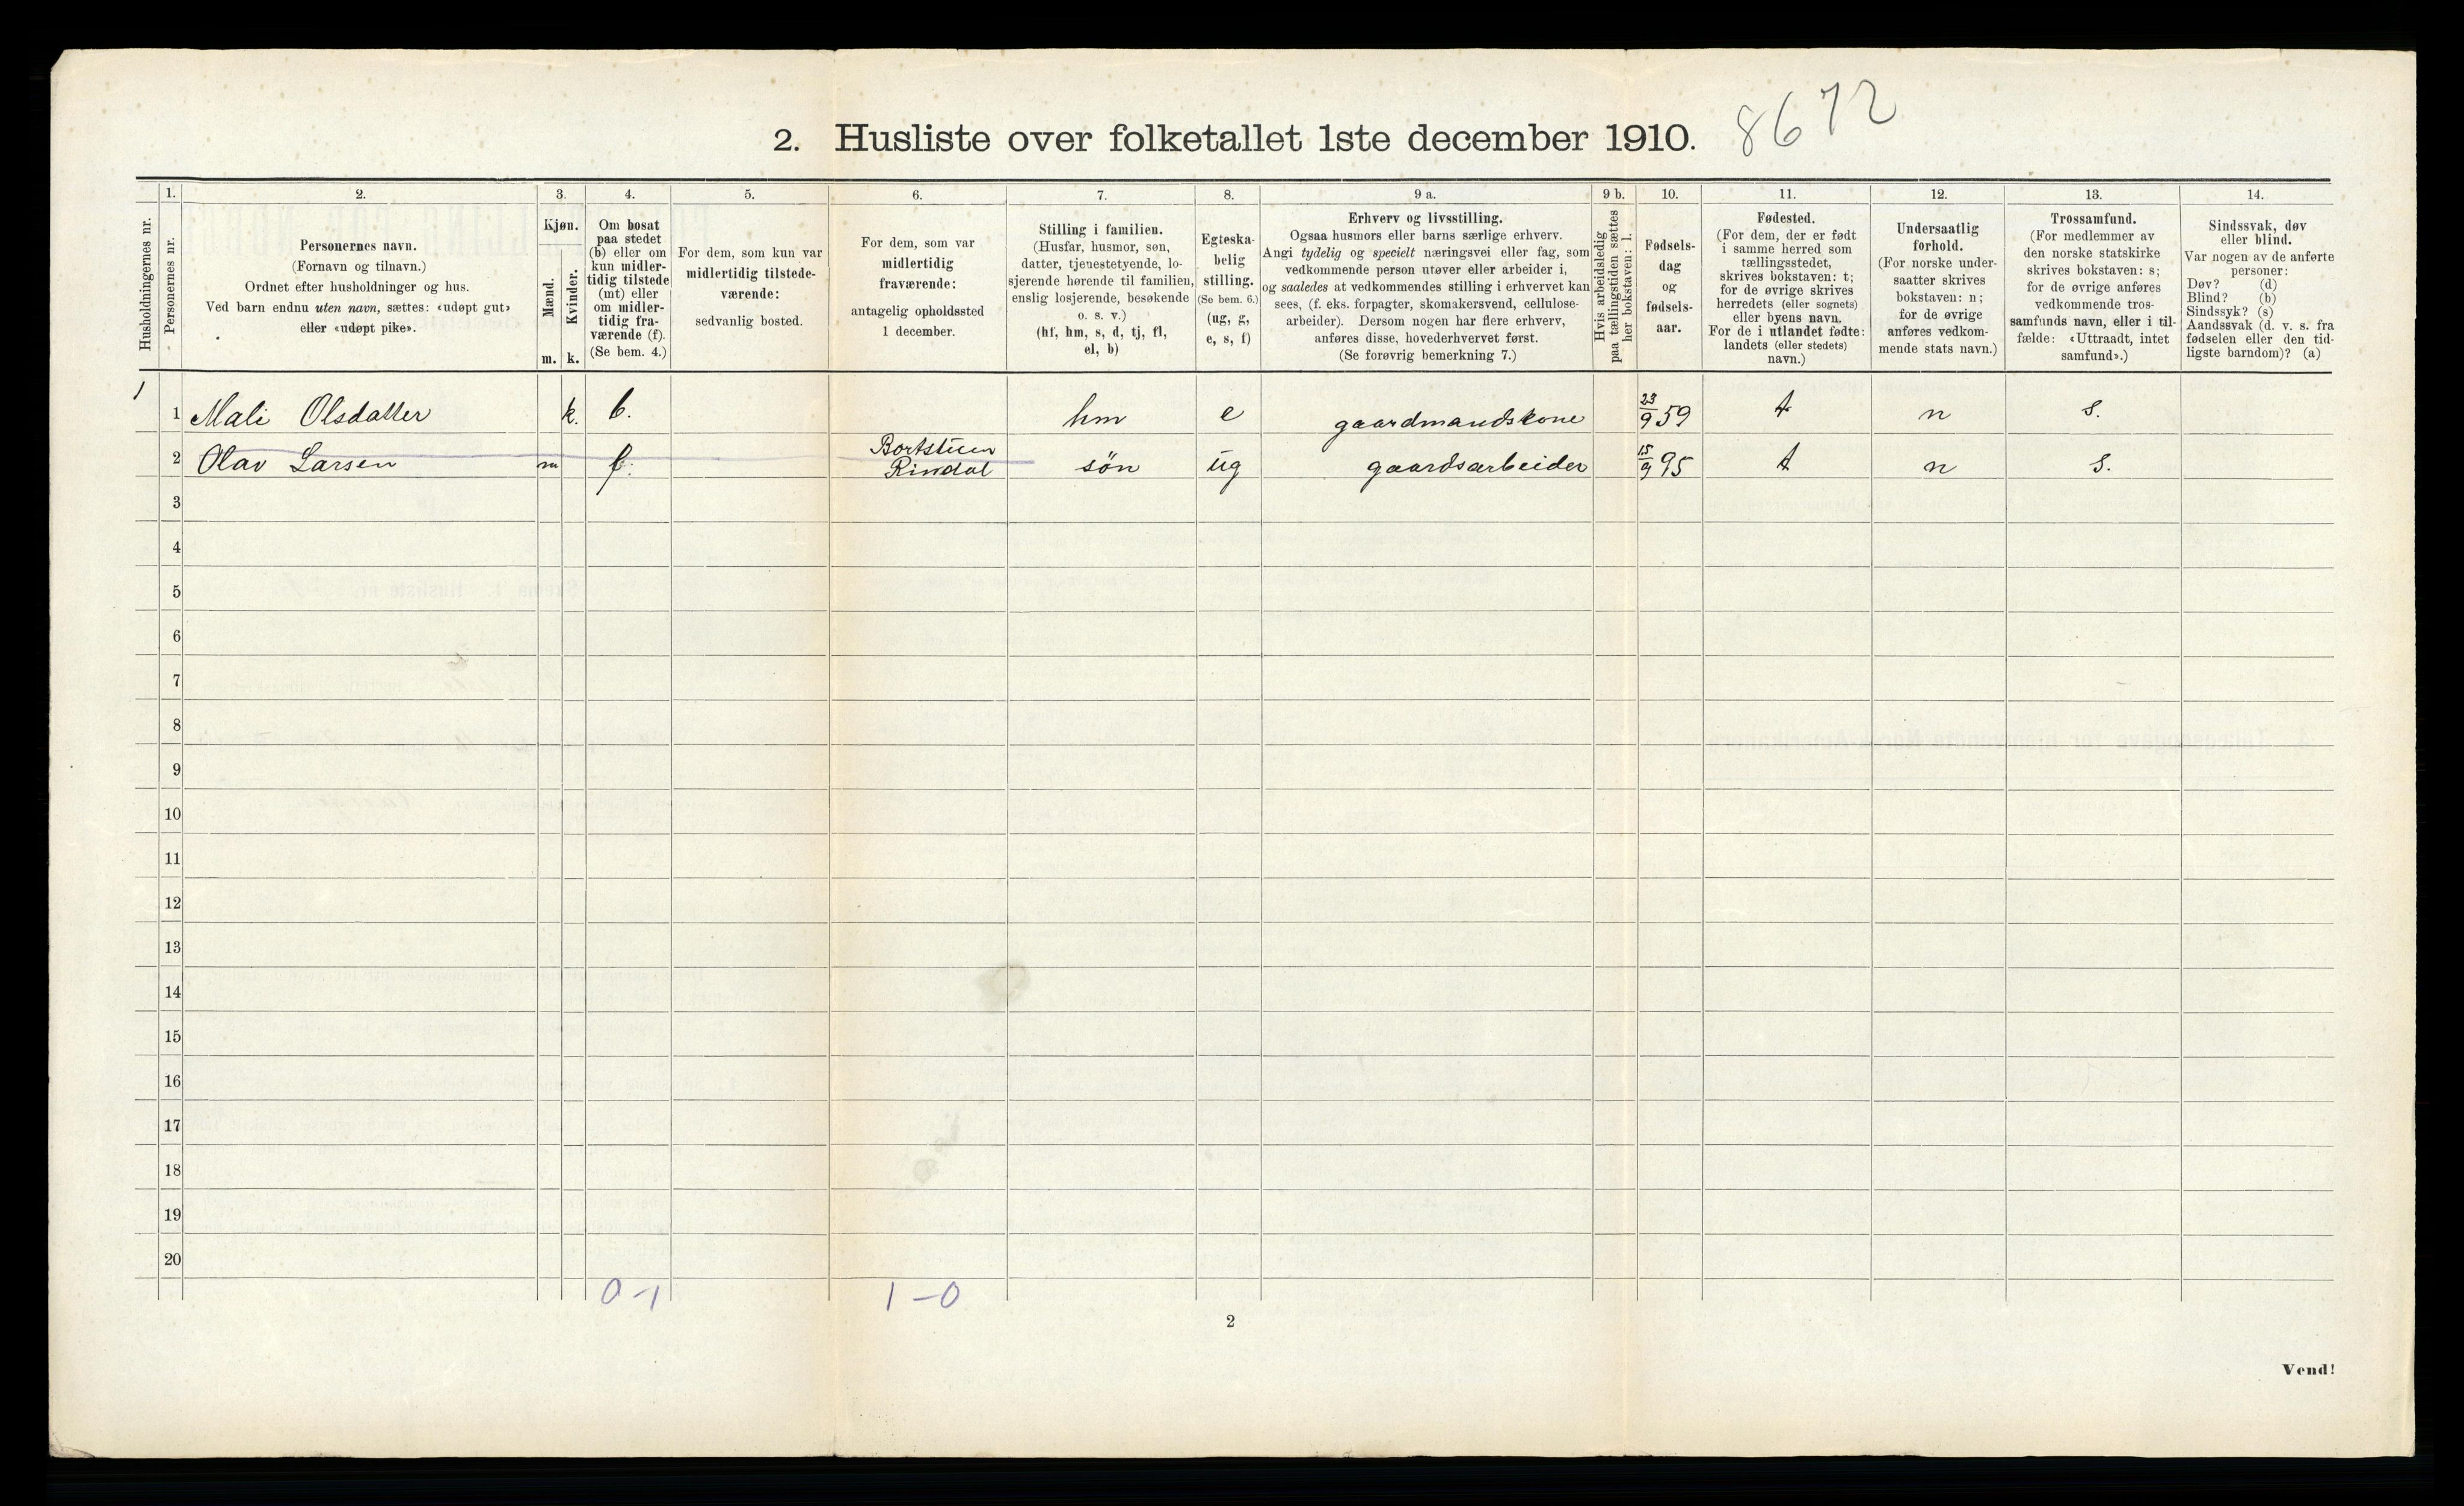 8672
2. Husliste over folketallet 1ste december 1910.
Husholdningernes nr.
1.
Personernes nr.
2.
Personernes navn.
(Fornavn og tilnavn.)
Ordnet efter husholdninger og hus.
Ved barn endnu uten navn, sættes: «udøpt gut»
eller «udøpt pike».
3.
Kjøn.
Mænd.
Kvinder.
m. k.
4.
Om bosat
paa stedet
(b) eller om
kun midler-
tidig tilstede
(mt) eller
om midler-
tidig fra-
værende (f).
(Se bem. 4.)
5.
For dem, som kun var
midlertidig tilstede-
værende:
sedvanlig bosted.
6.
For dem, som var
midlertidig
fraværende:
antagelig opholdssted
1 december.
7.
Stilling i familien.
(Husfar, husmor, søn,
datter, tjenestetyende, lo-
sjerende hørende til familien,
enslig losjerende, besøkende
o. s. v.)
(hf, hm, s, d, tj, fl,
el, b)
8.
Egteska-
belig
stilling.
(Se bem. 6.)
(ug, g,
e, s, f)
9 a.
Erhverv og livsstilling.
Ogsaa husmors eller barns særlige erhverv.
Angi tydelig og specielt næringsvei eller fag, som
vedkommende person utøver eller arbeider i,
og saaledes at vedkommendes stilling i erhvervet kan
sees, (f. eks. forpagter, skomakersvend, cellulose-
arbeider). Dersom nogen har flere erhverv,
anføres disse, hovederhvervet først.
(Se forøvrig bemerkning 7.)
9 b.
Hvis arbeidsledig
paa tællingstiden sættes
her bokstaven: l.
10.
Fødsels-
dag
og
fødsels-
aar.
11.
Fødested.
(For dem, der er født
i samme herred som
tællingsstedet,
skrives bokstaven: t;
for de øvrige skrives
herredets (eller sognets)
eller byens navn.
For de i utlandet fødte:
landets (eller stedets)
navn.)
12.
Undersaatlig
forhold.
(For norske under-
saatter skrives
bokstaven: n;
for de øvrige
anføres vedkom-
mende stats navn.)
13.
Trossamfund.
(For medlemmer av
den norske statskirke
skrives bokstaven: s;
for de øvrige anføres
vedkommende tros-
samfunds navn, eller i til-
fælde: «Uttraadt, intet
samfund».)
14.
Sindssvak, døv
eller blind.
Var nogen av de anførte
personer:
Døv? (d)
Blind? (b)
Sindssyk? (s)
Aandssvak (d. v. s. fra
fødselen eller den tid-
ligste barndom)? (a)
1 1 Mali Olsdatter k. b. hm e gaardmandskone 23/9 59 t n s.
2 Olav Larsen m f. Bortstuen
Rindal søn ug gaardsarbeider 15/9 95 t n s.
3
4
5
6
7
8
9
10
11
12
13
14
15
16
17
18
19
20
0-1 1-0
2
Vend!